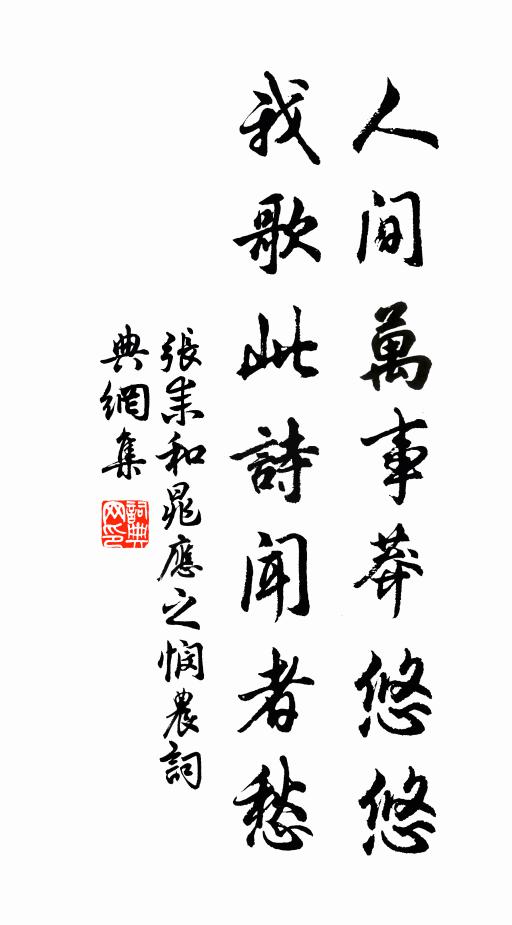 人間萬事莽悠悠
我歌此詩聞者愁
張耒和晁應之憫農詞
典網集
詞典网印